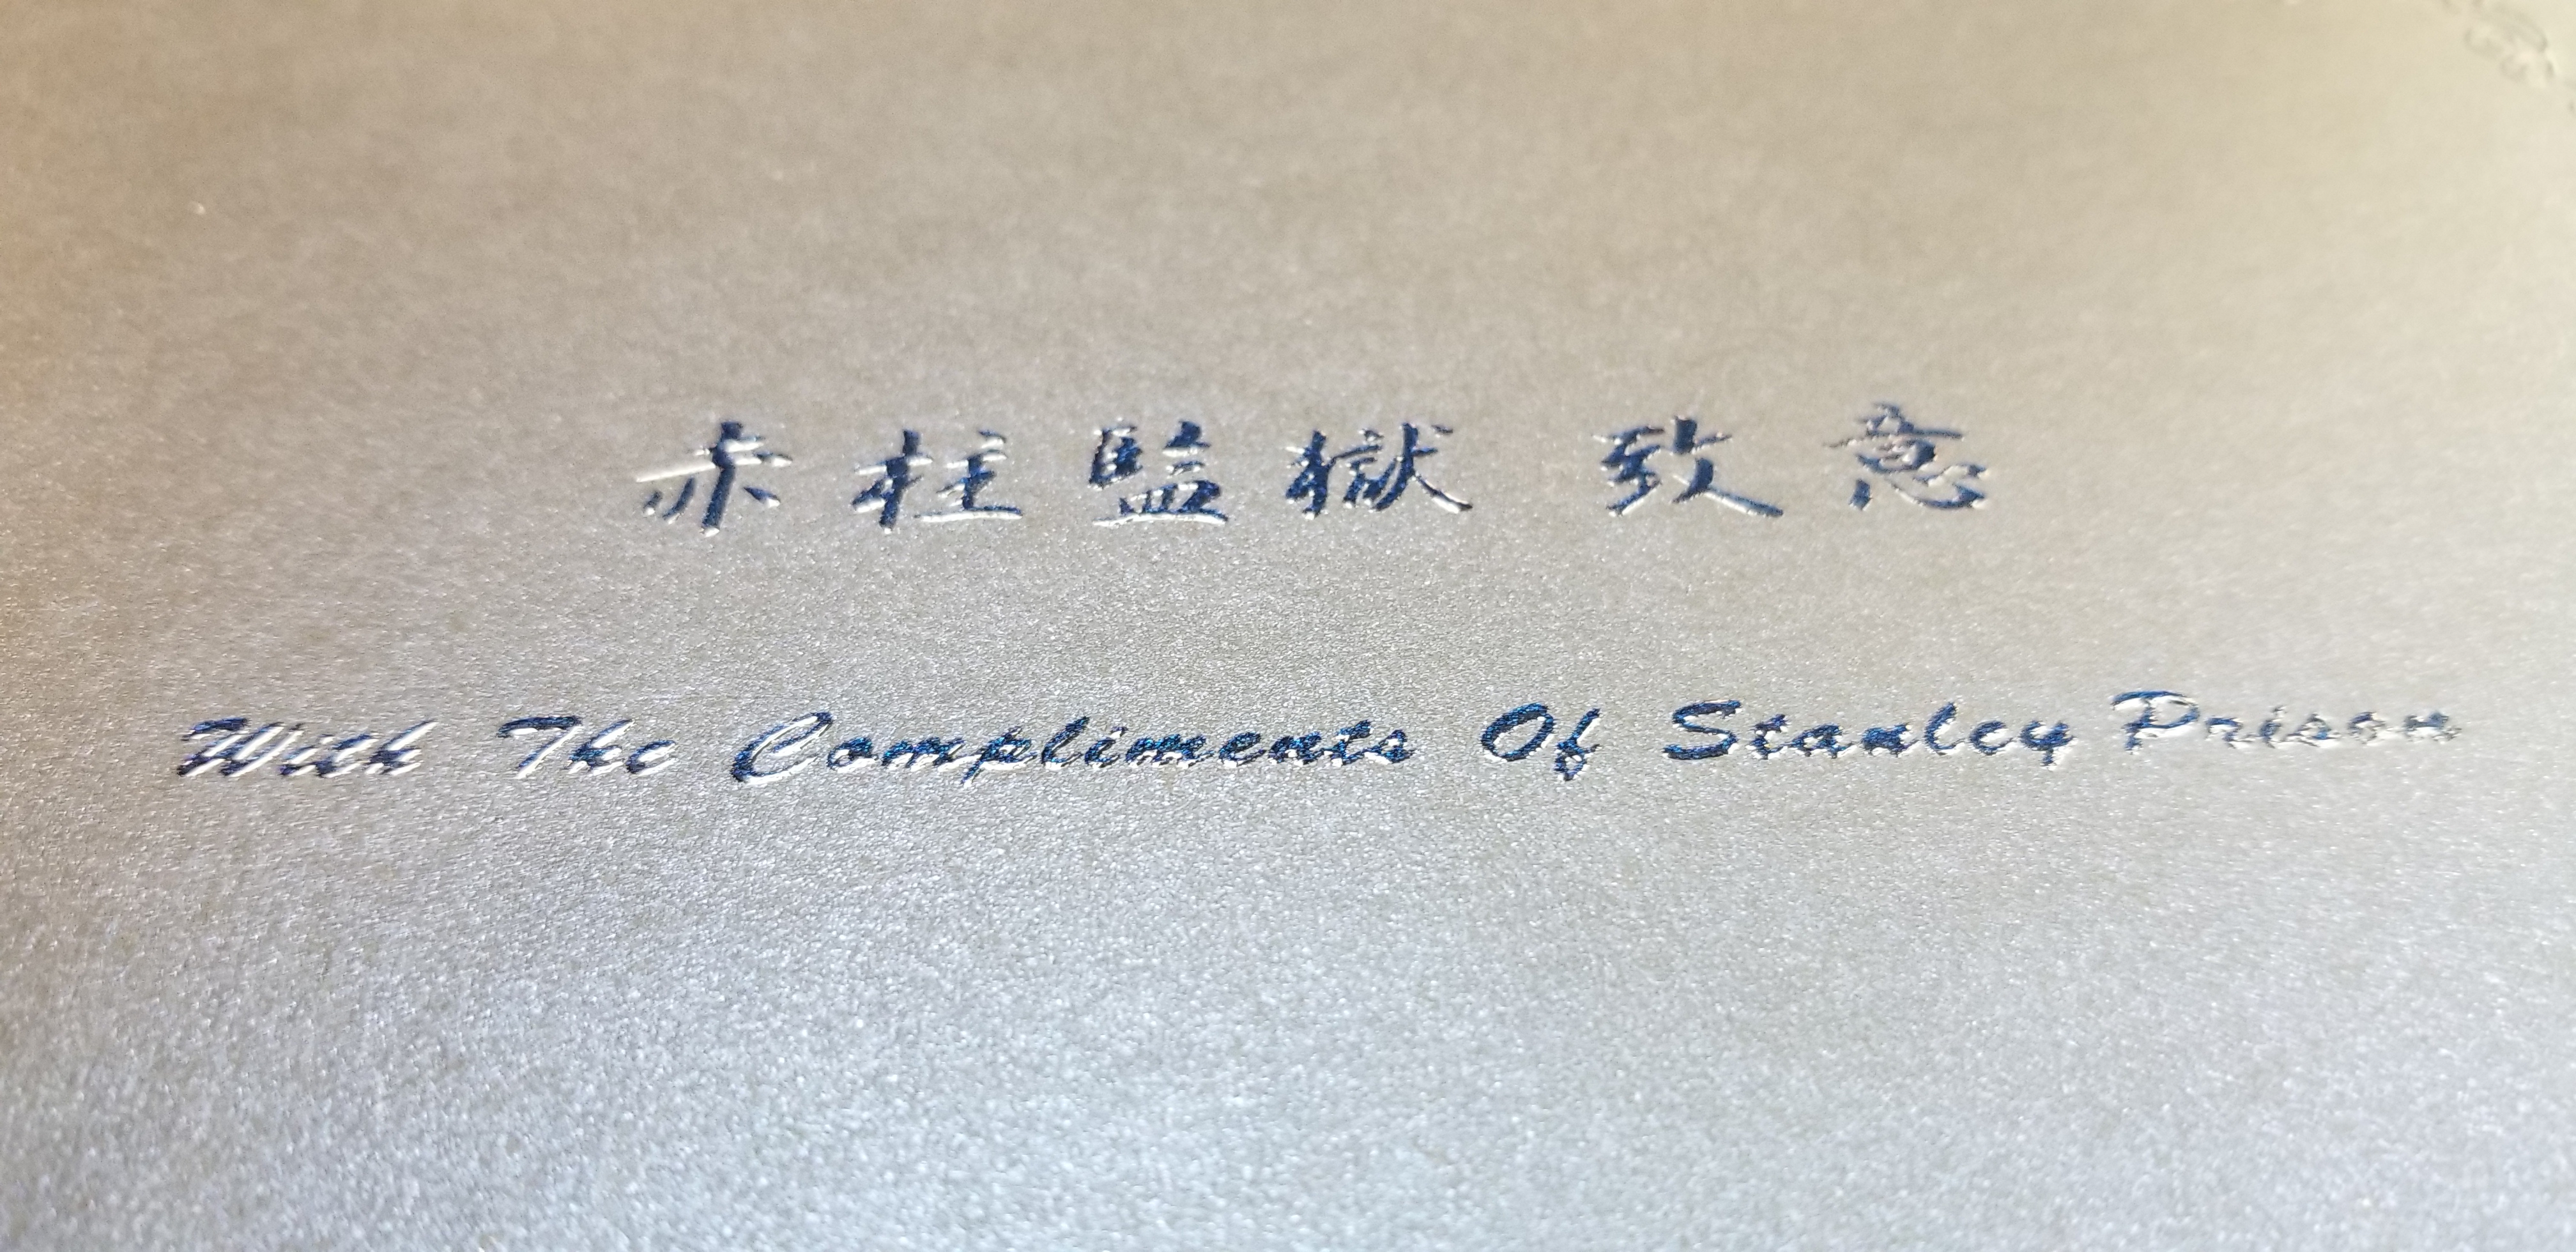 赤柱監獄 致意
With The Compliments Of Stanley Prison